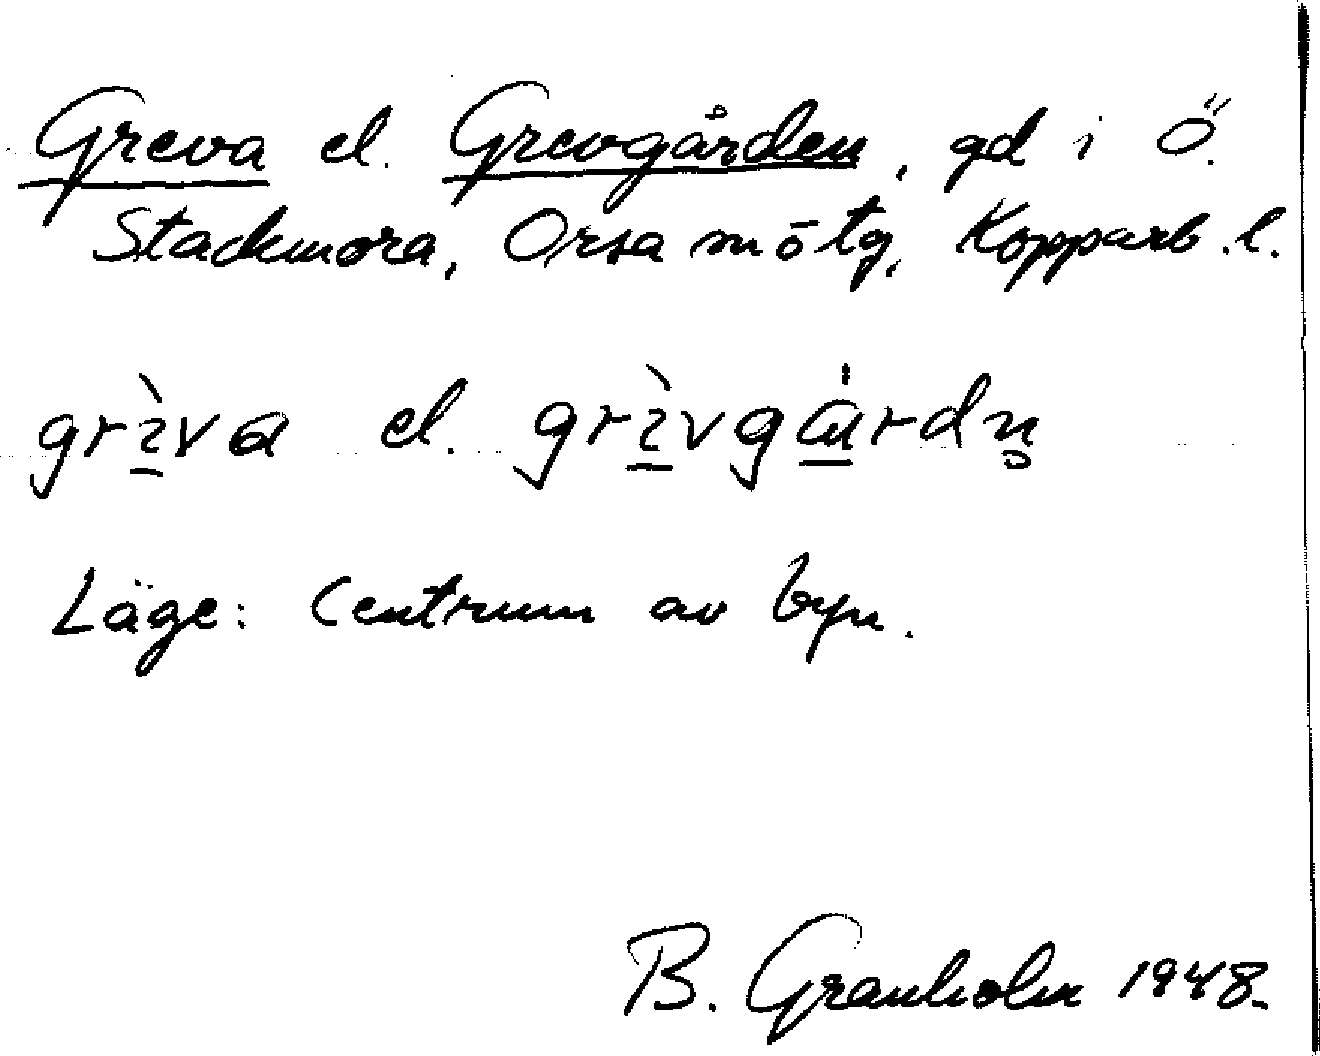 Greva el. Grevgården, gd i Ö.
Stackmora, Orsa sn ö tg, Kopparb. l.
grìva el. grìvgårdn̥
Läge: Centrum av byn.
B. Granholm 1948.